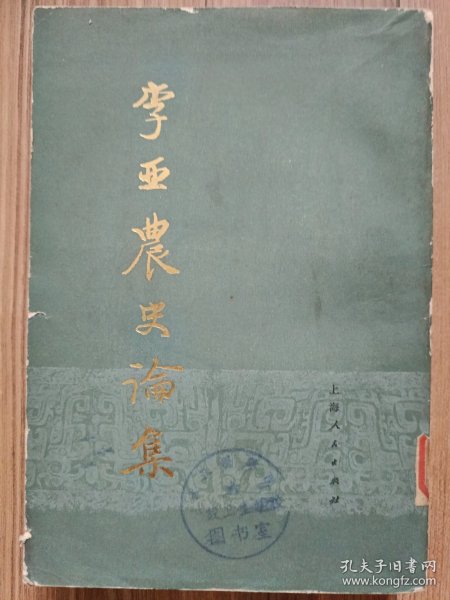 李亚農史論集
上海人民出版社
图书室
孔夫子旧书网
www.kongfz.com